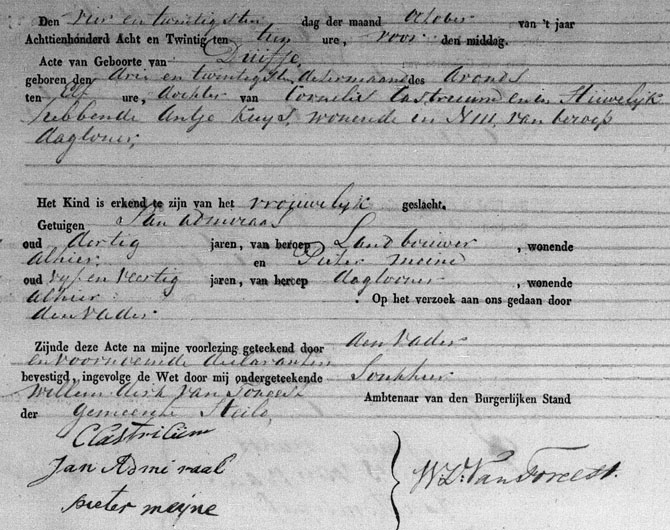 Den vier en twintigsten dag der maand october van 't jaar
Achttienhonderd Acht en Twintig ten tien ure, voor den middag.
Acte van Geboorte van Duifje,
geboren den drie en twintigsten dezer maand des avonds
ten Elf ure, dochter van Cornelis Castricum en in Huwelijk
hebbende Antje Kuys, wonende in N 111, van beroep
dagloner,
Het Kind is erkend te zijn van het vrouwelijk geslacht.
Getuigen Jan admiraal
oud dertig jaren, van beroep Landbouwer, wonende
alhier en Pieter meine
oud vyf en veertig jaren, van beroep daglooner, wonende
alhier. Op het verzoek aan ons gedaan door
den vader
Zijnde deze Acte na mijne voorlezing geteekend door den vader
en voornoemde declaranten
bevestigd, ingevolge de Wet door mij ondergeteekende
Willem Dirk van Foreest Ambtenaar van den Burgerlijken Stand
der gemeente Heilo,
C Castricum
Jan Admiraal
pieter meijne
W: D: Van Foreest.